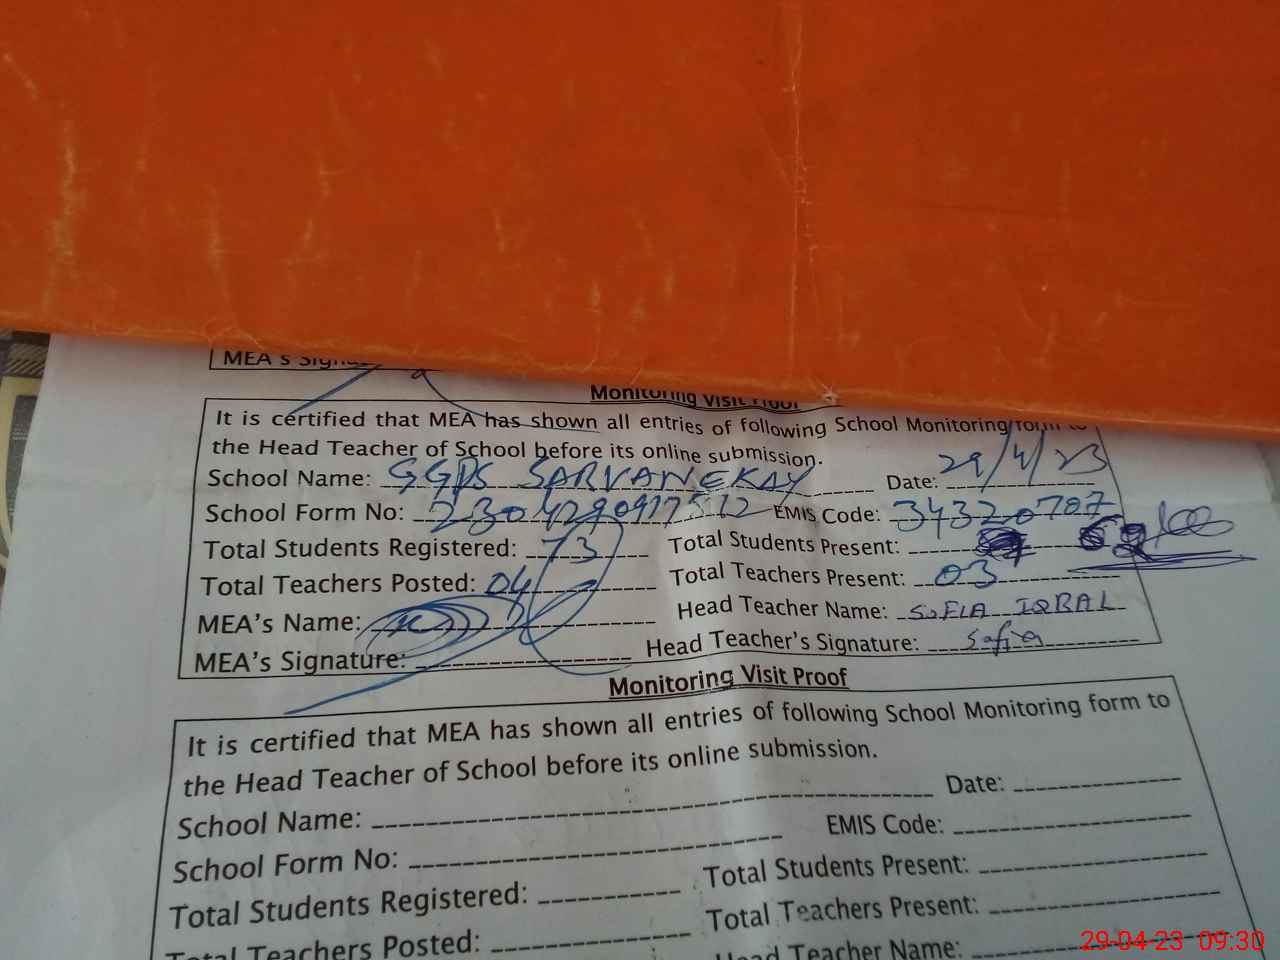 MEA's
Monitoring Visit Proof
It is certified that MEA has shown all entries of following School Monitoring form to
the Head Teacher of School before its online submission.
School Name: GGPS SARVANEKAY Date: 29/4/23
School Form No: EMIS Code: 34320707
Total Students Registered: 73 Total Students Present:
Total Teachers Posted: 04 Total Teachers Present: 03
MEA's Name: Head Teacher Name: SOFIA IQBAL
MEA's Signature: Head Teacher's Signature: Sofia
Monitoring Visit Proof
It is certified that MEA has shown all entries of following School Monitoring form to
the Head Teacher of School before its online submission.
School Name: Date:
School Form No: EMIS Code:
Total Students Registered: Total Students Present:
Total Teachers Posted: Total Teachers Present:
Head Teacher Name:
29-04-23 09:30